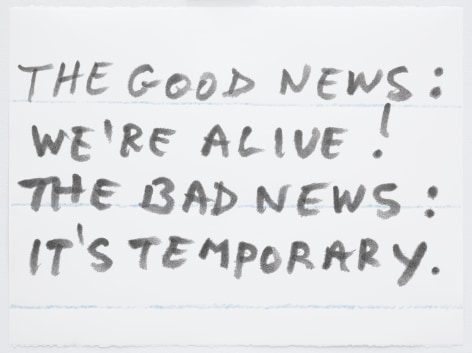 THE GOOD NEWS:
WE'RE ALIVE!
THE BAD NEWS:
IT'S TEMPORARY.